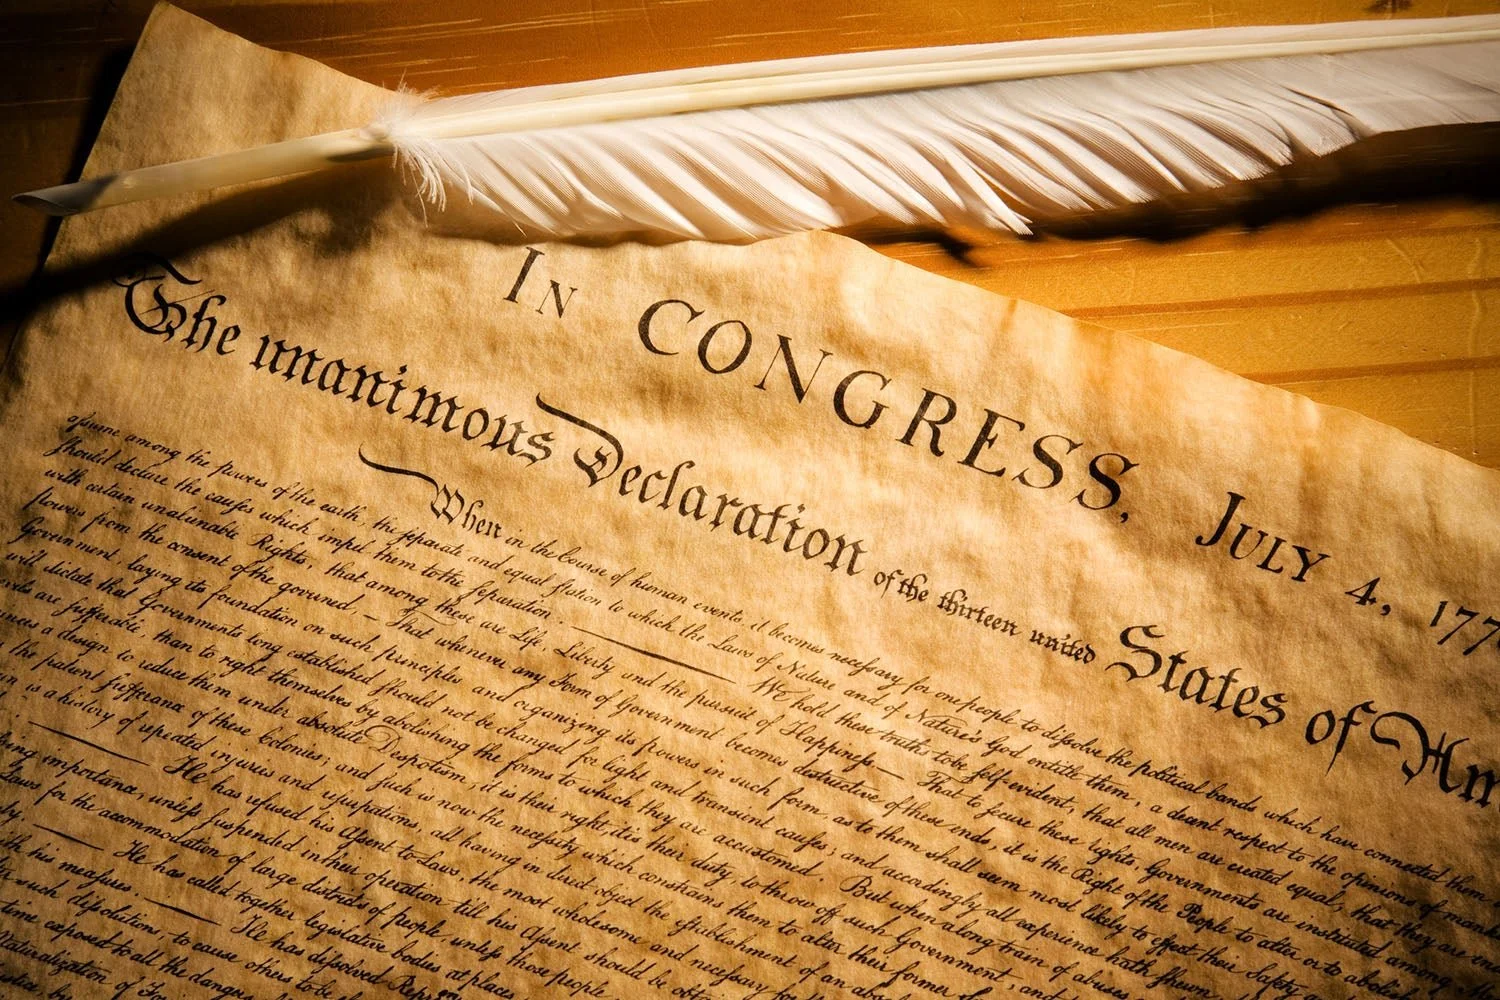 In CONGRESS, July 4, 177
The unanimous Declaration of the thirteen united States of Am
When in the Course of human events, it becomes necessary for one people to dissolve the political bands which have connected them
assume among the powers of the earth, the separate and equal station to which the Laws of Nature and of Nature's God entitle them, a decent respect to the opinions of mank
should declare the causes which impel them to the separation. We hold these truths to be self-evident, that all men are created equal, that they are end
with certain unalienable Rights, that among these are Life, Liberty and the pursuit of Happiness. — That to secure these rights, Governments are instituted among
powers from the consent of the governed, — That whenever any Form of Government becomes destructive of these ends, it is the Right of the People to alter or to abolish
Government, laying its foundation on such principles and organizing its powers in such form, as to them shall seem most likely to effect their Safety
will dictate that Governments long established should not be changed for light and transient causes; and accordingly all experience hath shewn
evils are sufferable, than to right themselves by abolishing the forms to which they are accustomed. But when a long train of abuses
a design to reduce them under absolute Despotism, it is their right, it is their duty, to throw off such Government, and
the patient sufferance of these Colonies; and such is now the necessity which constrains them to alter their former
is a history of repeated injuries and usurpations, all having in direct object the establishment of an
He has refused his Assent to Laws, the most wholesome and necessary for
importance, unless suspended in their operation till his Assent should be obt
Laws for the accommodation of large districts of people, unless those people
He has called together legislative bodies at places
his measures. He has dissolved Repr
such dissolutions, to cause others to be
time exposed to all the dangers
Naturalization of For